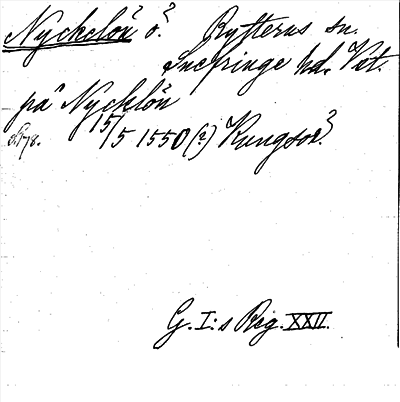 Nyckelön? ö.? Rytterns sn.
Snefringe hd. Vstl.
på Nycklön
s. 178. 15/5 1550 (?) Kungsör?
G. I:s Reg. XXII.